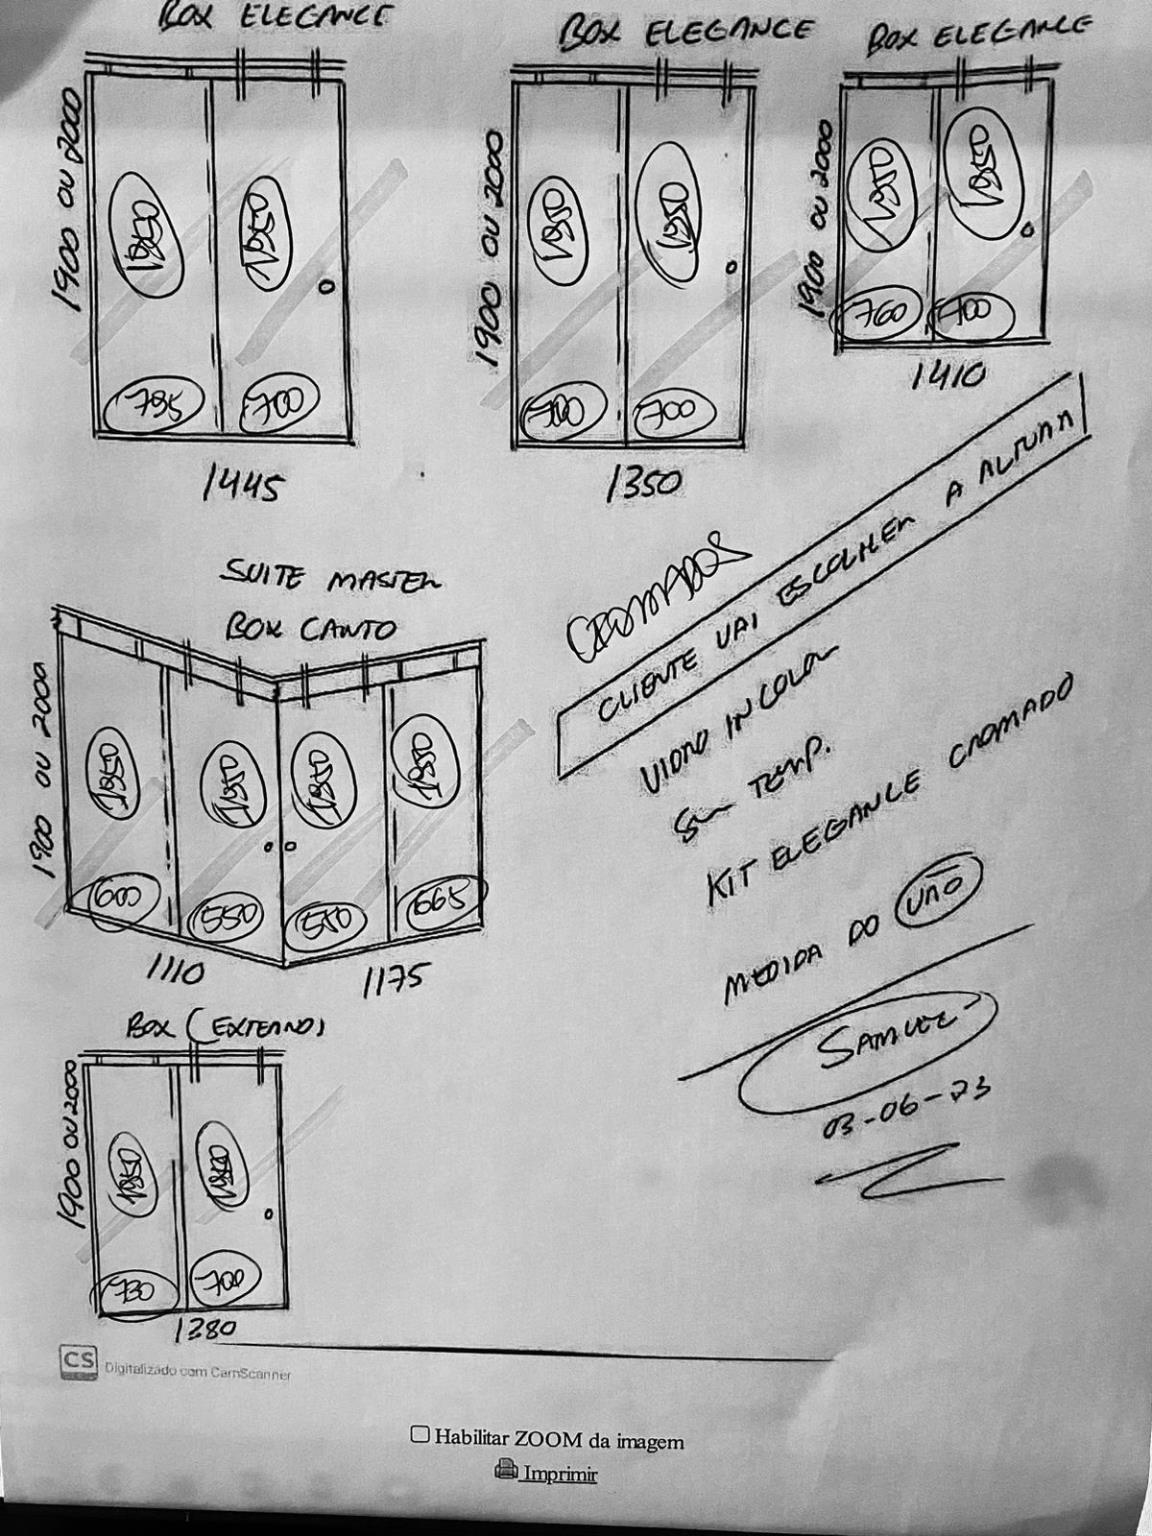 BOX ELEGANCE
1900 OU 2000
1850
1850
795
700
1445
BOX ELEGANCE
1900 OU 2000
1850
1850
700
700
1350
BOX ELEGANCE
1900 OU 2000
1850
1850
760
700
1410
SUITE MASTER
BOX CANTO
1900 OU 2000
1850
1850
1850
1850
600
550
550
665
1110
1175
BOX (EXTERNO)
1900 OU 2000
1850
1850
730
700
1380
CROMADOS
CLIENTE VAI ESCOLHER A ALTURA
VIDRO INCOLOR
Sem TEMP.
KIT ELEGANCE CROMADO
MEDIDA DO VÃO
SAMUEL
03-06-23
CS Digitalizado com CamScanner
Habilitar ZOOM da imagem
Imprimir